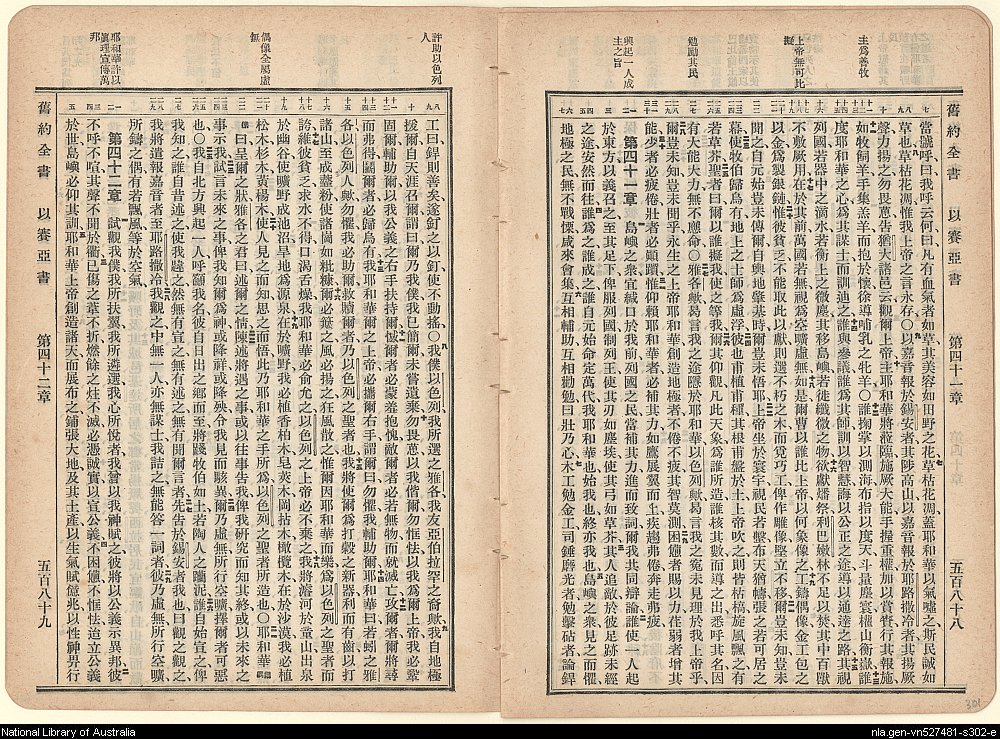 舊約全書　以賽亞書　第四十一章　五百八十八
主為善牧
上帝無可比
擬
勉勵其民
興起一人成
主之旨
當誠呼曰我呼云何曰凡有血氣者如草其美容如田野之花草枯花凋蓋耶和華以氣噓之斯民誠如
草也草枯花凋惟我上帝之言永存○以嘉音報於錫安者其陟高山以嘉音報於耶路撒冷者其揚厥
聲力揚之勿畏葸告猶大諸邑云觀爾上帝主耶和華將蒞臨施厥大能手握重權加以賞賚行其報施
如牧飼羊手集羔羊而抱於懷徐導哺乳之牝羊○誰掬掌以測海布指以度天斗量塵寰權山衡嶽誰
度耶和華之心為其謀士而訓迪之誰與參議誰為其師訓以智慧誨以公正之途導以通達之路其視
列國若器中之滴水若衡上之微塵其移島嶼若徙纖微之物欲獻燔祭利巴嫩林不足以爇其中百獸
不敷厥用在於其前萬國若無視為空曠虛無如是爾曹以誰比上帝以何象像之工鑄偶像金工包之
以金為製銀鏈惟彼貧乏不能取此以獻則選不朽之木而覓巧工俾作雕像堅立不移爾豈未知豈未
聞之自元始豈未傳爾自輿地肇基時爾豈未悟耶上帝坐於寰宇視民若螽布天猶幬張之若可居之
幕使牧伯歸烏有地上之士師為虛浮彼也甫植甫種其根甫盤於土上帝吹之則皆枯槁旋風飄之有
若草芥聖者曰爾以誰擬我使之等我爾其仰觀凡此天象為誰所造誰核其數而導之出悉呼其名因
有大能大力無不應命○雅各歟曷言我之途隱於耶和華以色列歟曷言我之寃未見理於我上帝乎
爾豈未知豈未聞乎永生之上帝耶和華創造地極者不倦不疲其智莫測困憊者賜以力荏弱者增其
能少者必疲倦壯者必顛躓惟仰賴耶和華者必補其力如鷹展翼而上疾趨弗倦奔走弗疲
第四十一章　島嶼之衆宜緘口於我前列國之民當補其力進而致詞爾我其同辯論誰使一人起
於東方以義召之至其足下俾服列國制列王使其刃必如塵埃使其弓如草芥其人追敵於彼足跡未經
之途安然而往誰為之誰成之誰自元始命定萬代我耶和華也始我也終亦我也島嶼之衆見之而懼
地極之民無不戰慄咸來會集互相輔助互相勸勉曰壯乃心木工勉金工司錘磨光者勉擊砧者論銲
許助以色列
人
偶像全屬虛
無
耶和華許以
眞理宣傳萬
邦
工曰銲則善矣遂釘之以釘使不動搖○我僕以色列我所選之雅各我友亞伯拉罕之裔歟我自地極
援爾自天涯召爾謂曰爾乃我僕我已簡爾未嘗遺棄勿畏葸我偕爾勿怔怯以我為爾上帝我必鞏
固爾輔助爾以我公義之右手扶持爾慍爾者必蒙羞抱愧敵爾者必若無物而就滅亡攻爾者爾將尋
而弗得鬬爾者必歸烏有我耶和華爾之上帝必攜爾右手謂爾曰勿懼我輔助爾耶和華曰若蚓之雅
各以色列人歟勿懼我必助爾救贖爾者乃以色列之聖者也我將使爾為打穀之新器利而有齒以打
諸山至成虀粉使諸崗如粃糠爾必簸之風必揚之狂風散之惟爾因耶和華而樂為以色列之聖者而
誇維彼貧乏求水不得口渴舌燥我耶和華必俞允之以色列之上帝必不棄之我將濬河於童山出泉
於幽谷使曠野成池沼旱地為源泉在於曠野我必植香柏木皂莢木岡拈木橄欖木在於沙漠我必植
松木杉木黃楊木使人見之而知思之而悟此乃耶和華之手所為以色列之聖者所造也○耶和華
曰呈爾之狀雅各之君曰述爾之情陳述將遇之事或以往事告我俾我研究而知其終或以未來之
事示我試言未來之事俾我知爾為神或降祥或降殃令我見而駭異爾乃虛無所行空曠擇爾者可惡
也○我自北方興起一人呼籲我名彼自日出之鄉而至將踐牧伯如土若陶人之躪泥誰自始宣之俾
我知之誰自昔述之使我謂之然無有宣之無有述之無有聞爾言者先告於錫安者我也曰觀之觀之
我將遣報嘉音者至耶路撒冷我觀之中無一人亦無謀士我詰之無能答一詞者彼乃虛無所行空曠
所鑄之偶有若飄風等於空氣
第四十二章　試觀我僕我所扶翼我所遴選我心所悅者我曾以我神賦之彼將以公義示異邦彼
不呼不喧其聲不聞於衢已傷之葦不折燃餘之炷不滅必憑誠實以宣公義不困憊不恇怯迨立公義
於世島嶼必仰其訓耶和華上帝創造諸天而展布之鋪張大地及其土產以生氣賦億兆以性靈畀行
舊約全書　以賽亞書　第四十二章　五百八十九
301
National Library of Australia
nla.gen-vn527481-s302-e